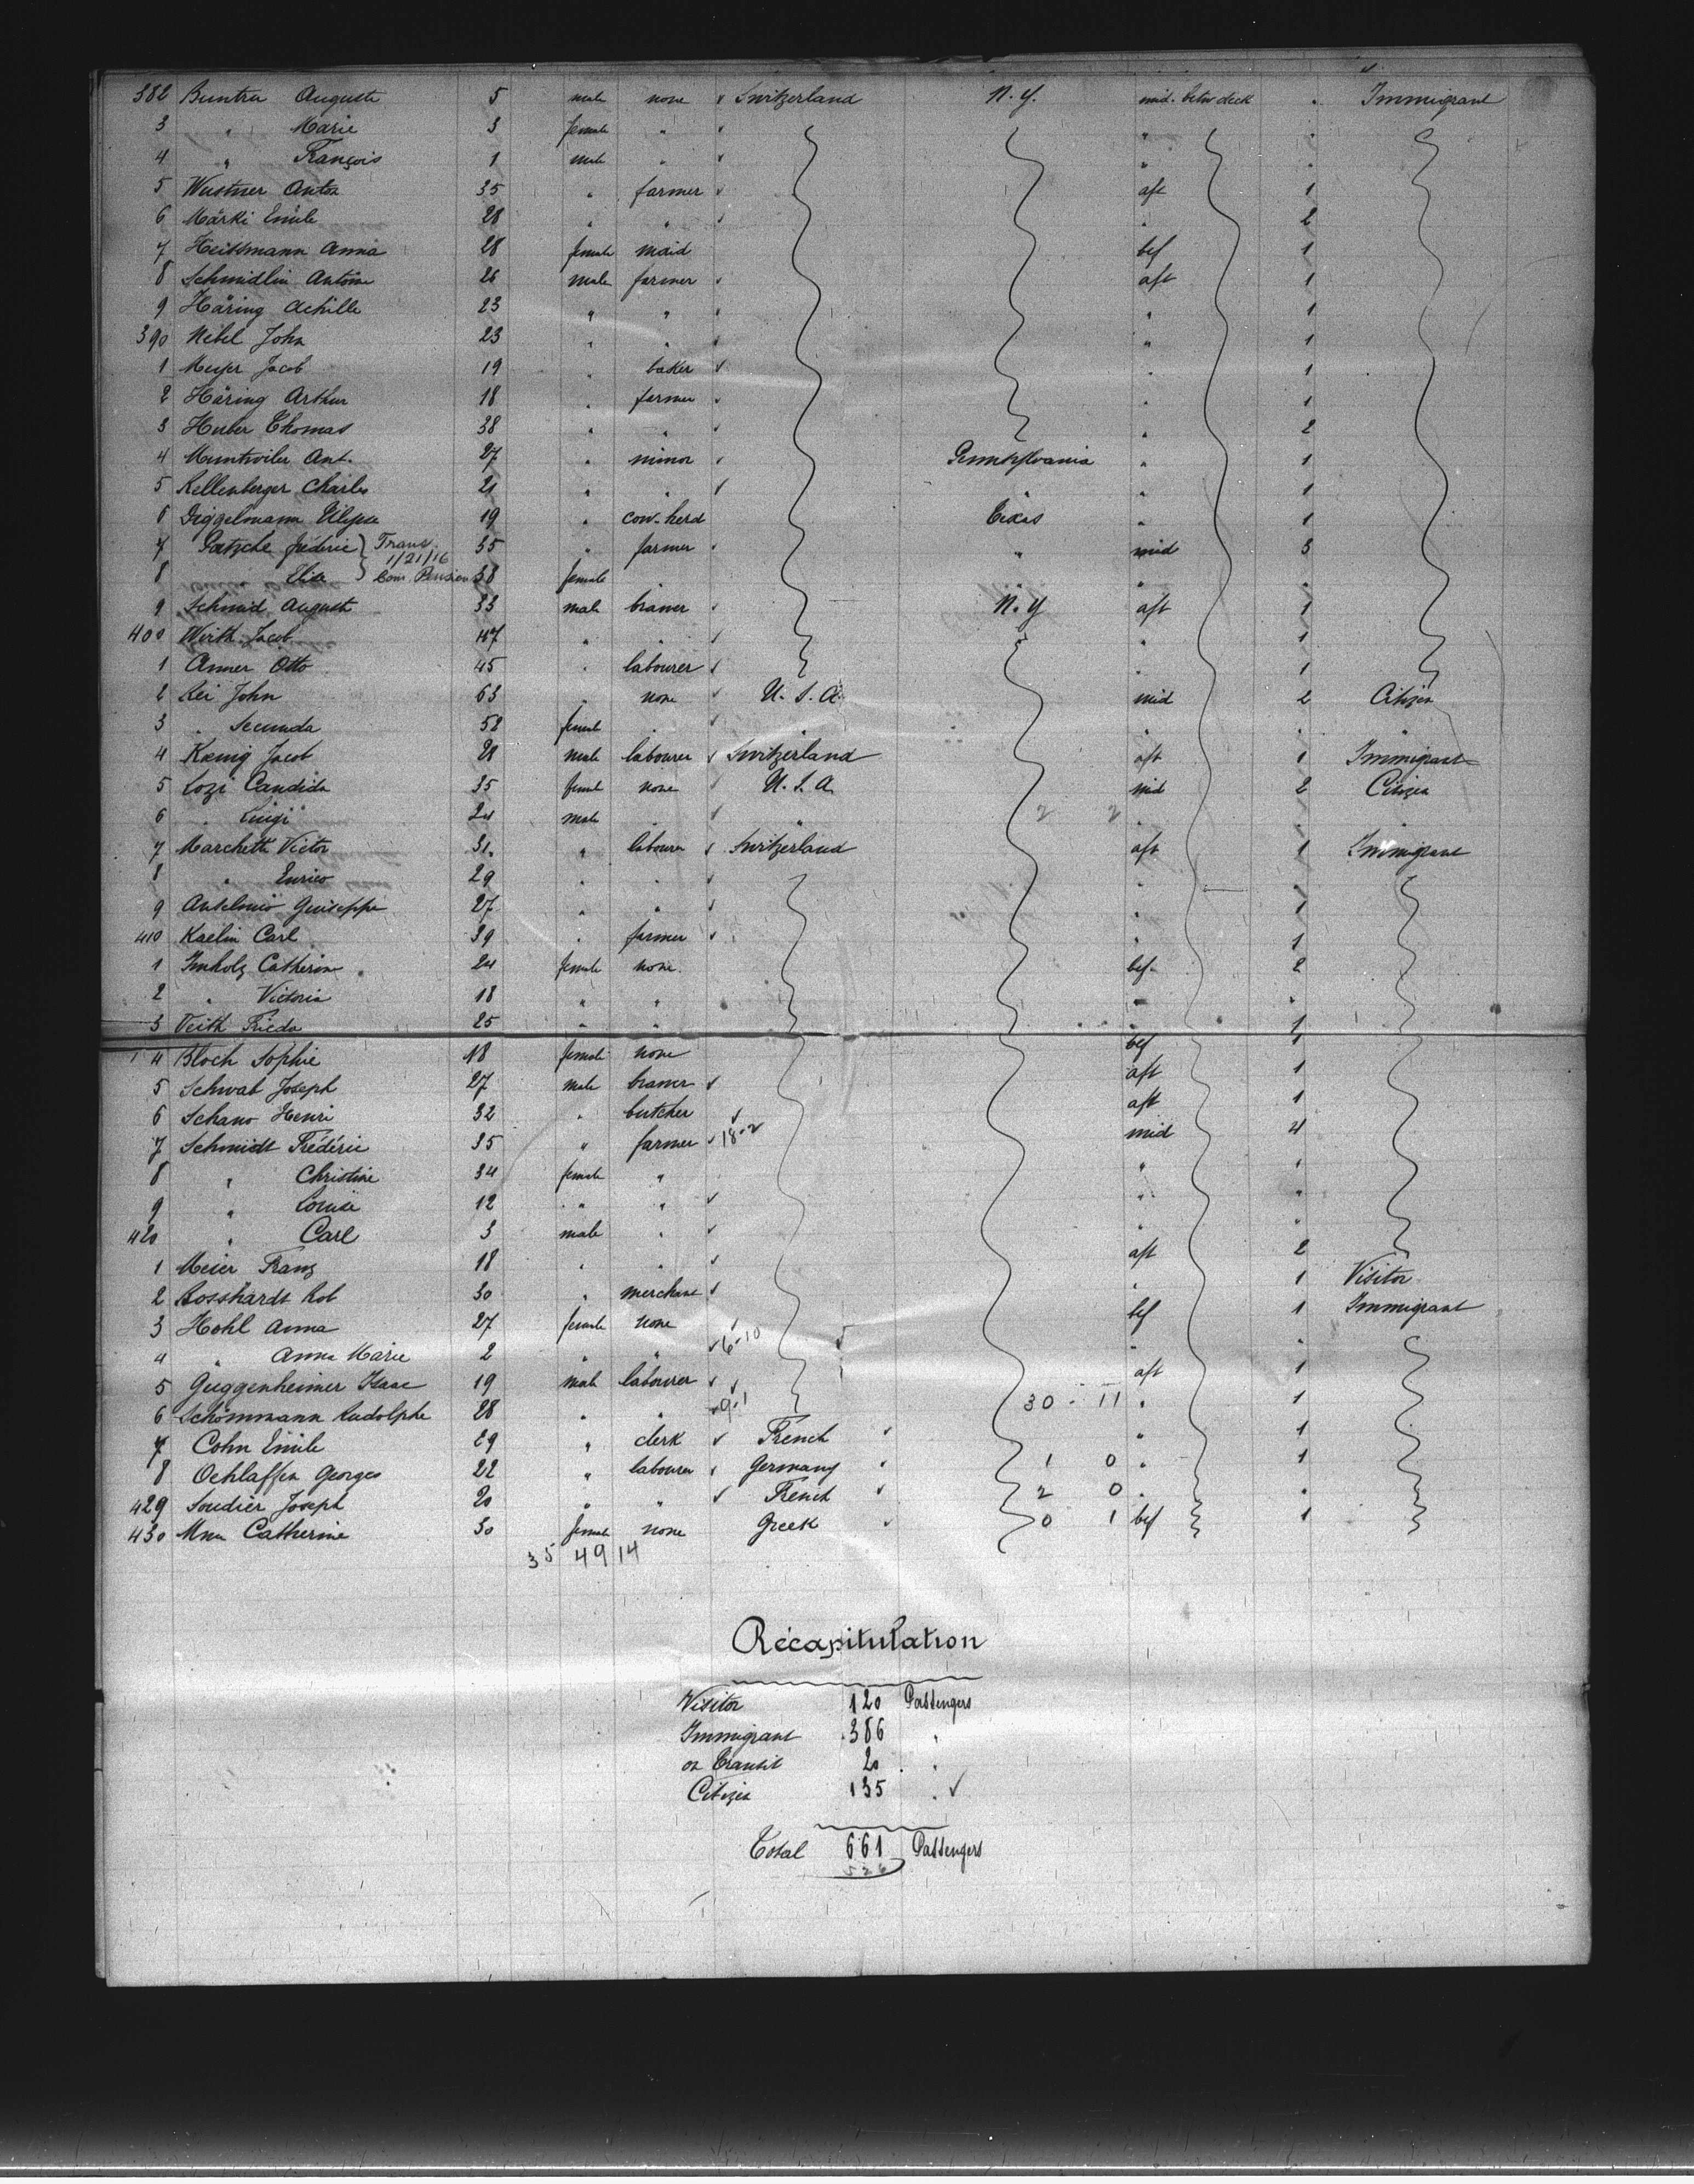 382 Buntra Auguste 5 male none √ Switzerland N. Y. mid. betw deck " Immigrant
3 " Marie 3 female " √ " "
4 " François 1 male " √ " "
5 Wustner Anton 35 " farmer √ aft 1
6 Märki Emile 28 " " √ " 2
7 Heitsmann Anna 28 female maid bef 1
8 Schmidlin Antoine 26 male farmer √ aft 1
9 Häring Achille 23 " " √ " 1
390 Nebel John 23 " " √ " 1
1 Meyer Jacob 19 " baker √ " 1
2 Häring Arthur 18 " farmer √ " 1
3 Huber Thomas 38 " " √ " 2
4 Muntwiler Ant. 27 " minor √ Pennsylvania " 1
5 Kellenberger Charles 21 " " √ " " 1
6 Giggelmann 19 " cow-herd Texas " 1
7 Goetzche Frederic } Trans. 1/21/16 35 " farmer √ " mid 3
8 Elise } Com. Pension 38 female " " "
9 Schmid August 33 male brawer √ N. Y aft 1
400 Wirth Jacob 47 " " √ " " 1
1 Anner Otto 45 " labourer √ " 1
2 Rei John 63 " none √ U. S. A. mid 2 Citizen
3 " Secunda 58 female " √ " " " "
4 Kœnig Jacob 28 male labourer √ Switzerland aft 1 Immigrant
5 Lozi Candida 35 female none √ U. S. A. mid 2 Citizen
6 " Luigi 24 male " √ " 2 2 " " "
7 Marchetti Victor 31 " labourer √ Switzerland aft 1 Immigrant
8 " Enrico 29 " " √ " 1
9 Anselmio Guiseppe 27 " " √ " 1
410 Kaelin Carl 39 " farmer √ " 1
1 Imholz Catherine 24 female none bef. 2
2 " Victoria 18 " " " "
3 Veith Frieda 25 " " " 1
4 Bloch Sophie 18 female none bef 1
5 Schwab Joseph 27 male brawer √ aft 1
6 Schano Henri 32 " butcher √ aft 1
7 Schmidt Frédéric 35 " farmer √ 18-2 mid 4
8 " Christine 34 female " " "
9 " Louise 12 " " √ " "
420 " Carl 3 male " √ " "
1 Meier Franz 18 " " √ aft 2
2 Bosshardt Rob 30 " merchant √ " 1 Visitor
3 Hohl Anna 27 female none √ bef 1 Immigrant
4 " Anna Marie 2 " " √ 6-10 " "
5 Guggenheimer Isaac 19 male labourer √ √ aft 1
6 Schömmann Rudolphe 28 " " √ 9-1 30 - 11 " 1
7 Cohn Emile 29 " clerk √ French √ " 1
8 Oehlaffen Georges 22 " labourer √ Germany √ 1 0 " 1
429 Soudier Joseph 20 " " √ French √ 2 0 " "
430 Catherine 30 female none Greek √ 0 1 bef 1
35 49 14
Récapitulation
Visitor 120 Passengers
Immigrant 386 "
on Transit 20 "
Citizen 135 " √
Total 661 Passengers
526